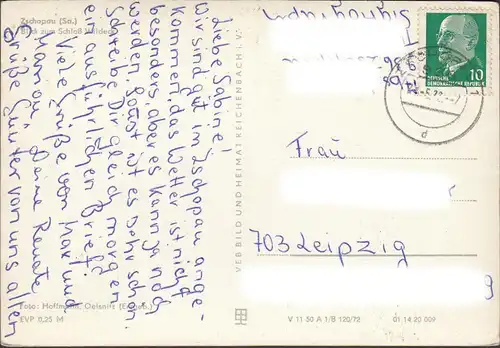 Zschopau (Sa.)
Blick zum Schloß Wildeck
Liebe Sabine!
Wir sind gut in Zschopau ange-
kommen, das Wetter ist nicht
besonders, aber es kann ja noch
werden, sonst ist es sehr schön.
Schreibe Dir gleich morgen
ein ausführlichen Brief.
Viele Grüße von Mar und
Deine Renate
Grüße von uns allen
Foto: Hoffmann, Oelsnitz (Erzgeb.)
EVP 0,25 M
VEB BILD UND HEIMAT REICHENBACH i. V.
V 11 50 A 1/B 120/72
01 14 20 009
DEUTSCHE
DEMOKRATISCHE REPUBLIK
10
d
Frau
703 Leipzig